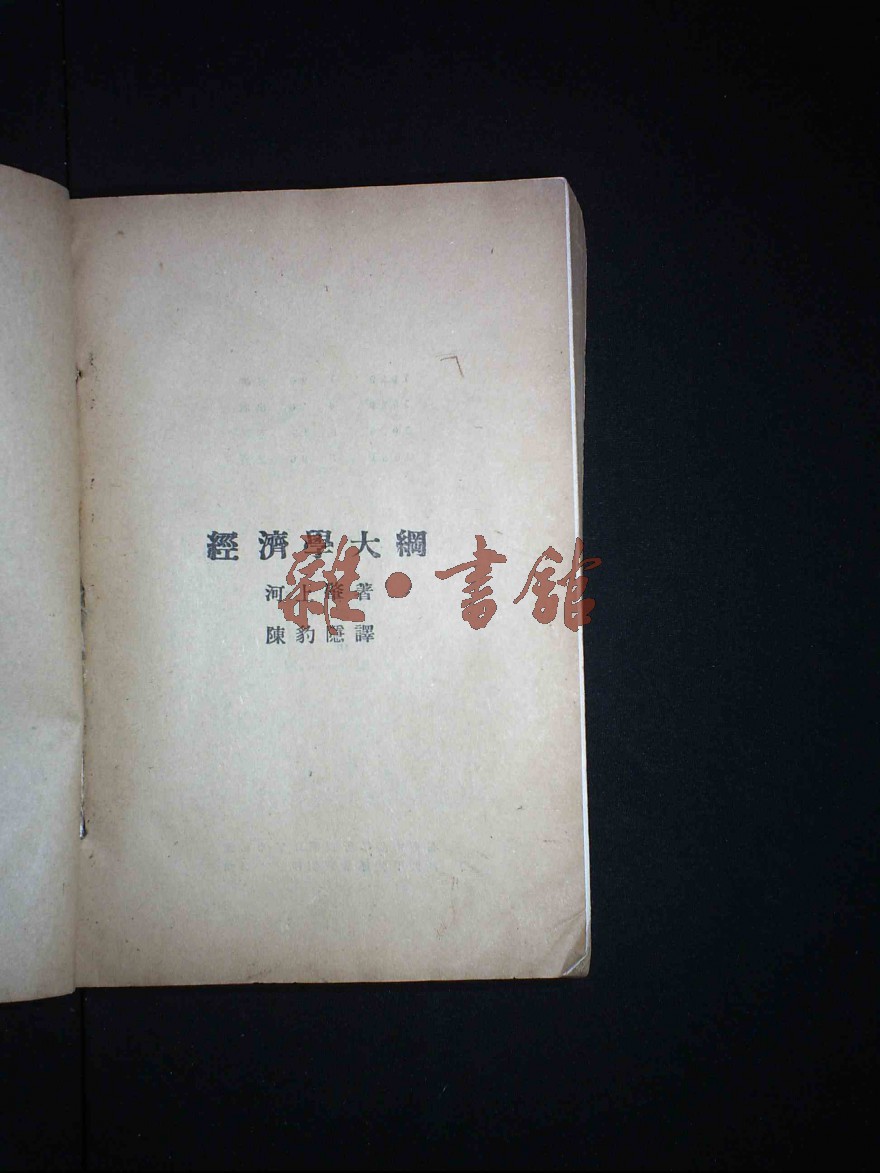 經濟學大綱
河上肇著
陳豹隱譯
雜·書館